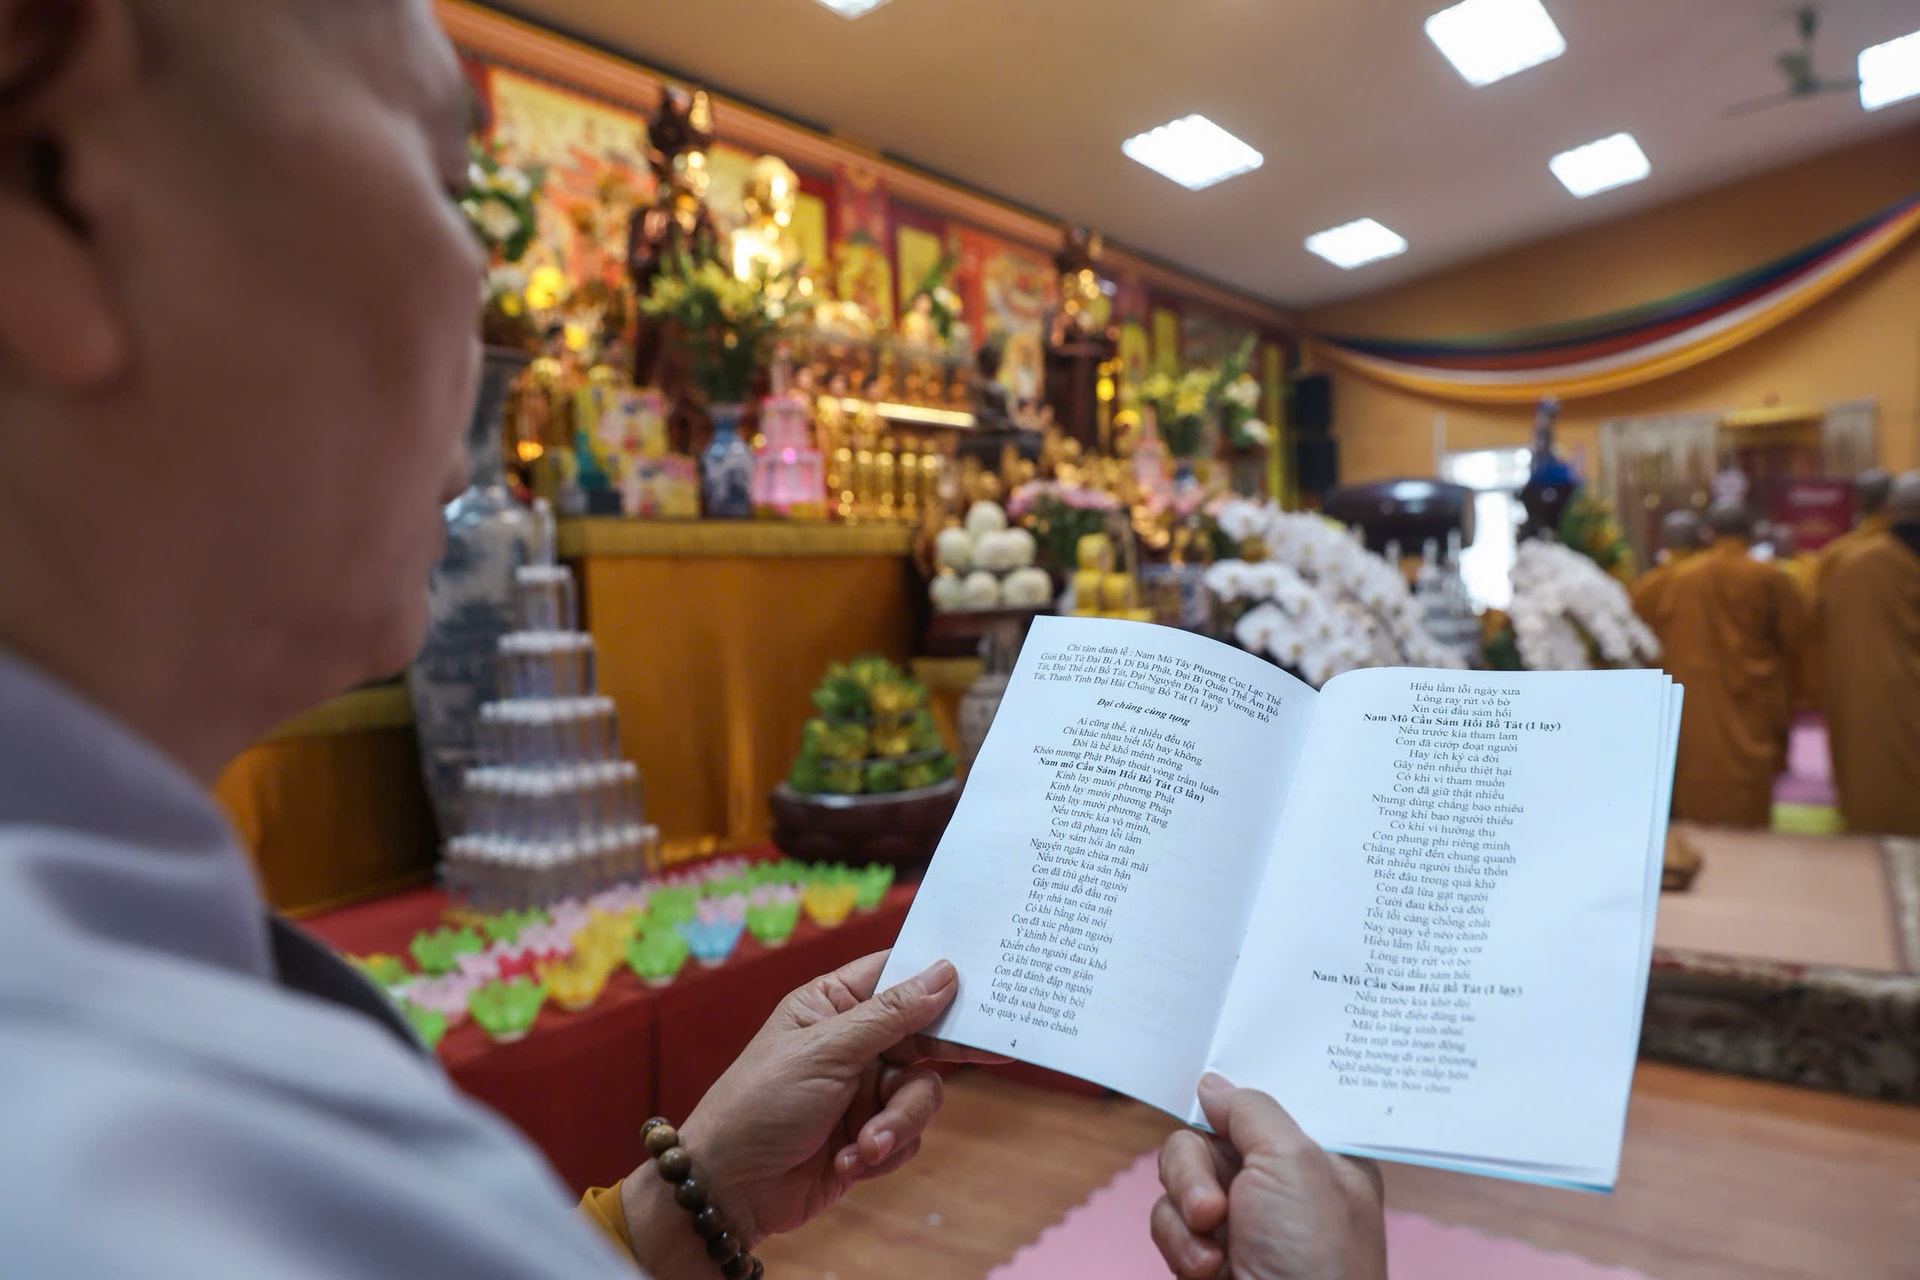 Chí tâm đảnh lễ : Nam Mô Tây Phương Cực Lạc Thế
Giới Đại Từ Đại Bi A Di Đà Phật, Đại Bi Quán Thế Âm Bồ
Tát, Đại Thế chí Bồ Tát, Đại Nguyện Địa Tạng Vương Bồ
Tát, Thanh Tịnh Đại Hải Chúng Bồ Tát (1 lạy)
Đại chúng cùng tụng
Ai cũng thế, ít nhiều đều tội
Chỉ khác nhau biết lỗi hay không
Đời là bể khổ mênh mông
Khéo nương Phật Pháp thoát vòng trầm luân
Nam mô Cầu Sám Hối Bồ Tát (3 lần)
Kính lạy mười phương Phật
Kính lạy mười phương Pháp
Kính lạy mười phương Tăng
Nếu trước kia vô minh,
Con đã phạm lỗi lầm
Nay sám hối ăn năn
Nguyện ngăn chừa mãi mãi
Nếu trước kia sân hận
Con đã thù ghét người
Gây máu đổ đầu rơi
Hay nhà tan cửa nát
Có khi bằng lời nói
Con đã xúc phạm người
Ý khinh bỉ chê cười
Khiến cho người đau khổ
Có khi trong cơn giận
Con đã đánh đập người
Lòng lửa cháy bời bời
Mặt dạ xoa hung dữ
Nay quay về nẻo chánh
4
Hiểu lầm lỗi ngày xưa
Lòng ray rứt vô bờ
Xin cúi đầu sám hối
Nam Mô Cầu Sám Hối Bồ Tát (1 lạy)
Nếu trước kia tham lam
Con đã cướp đoạt người
Hay ích kỷ cả đời
Gây nên nhiều thiệt hại
Có khi vì tham muốn
Con đã giữ thật nhiều
Nhưng dùng chẳng bao nhiêu
Trong khi bao người thiếu
Có khi vì hưởng thụ
Con phung phí riêng mình
Chẳng nghĩ đến chung quanh
Rất nhiều người thiếu thốn
Biết đâu trong quá khứ
Con đã lừa gạt người
Cười đau khổ cả đời
Tội lỗi càng chồng chất
Nay quay về nẻo chánh
Hiểu lầm lỗi ngày xưa
Lòng ray rứt vô bờ
Xin cúi đầu sám hối
Nam Mô Cầu Sám Hối Bồ Tát (1 lạy)
Nếu trước kia khờ dại
Chẳng biết điều đúng sai
Mãi lo lắng sinh nhai
Tâm mịt mờ loạn động
Không hướng đi cao thượng
Nghĩ những việc thấp hèn
Đời lẩn lộn bon chen
5